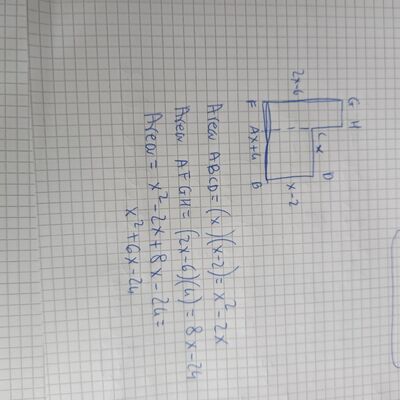 G H
D
C x
2x-6
x-2
F A x+4 B
Area ABCD = (x)(x-2) = x²-2x
Area AFGH = (2x-6)(4) = 8x-24
Area = x²-2x+8x-24 =
x²+6x-24